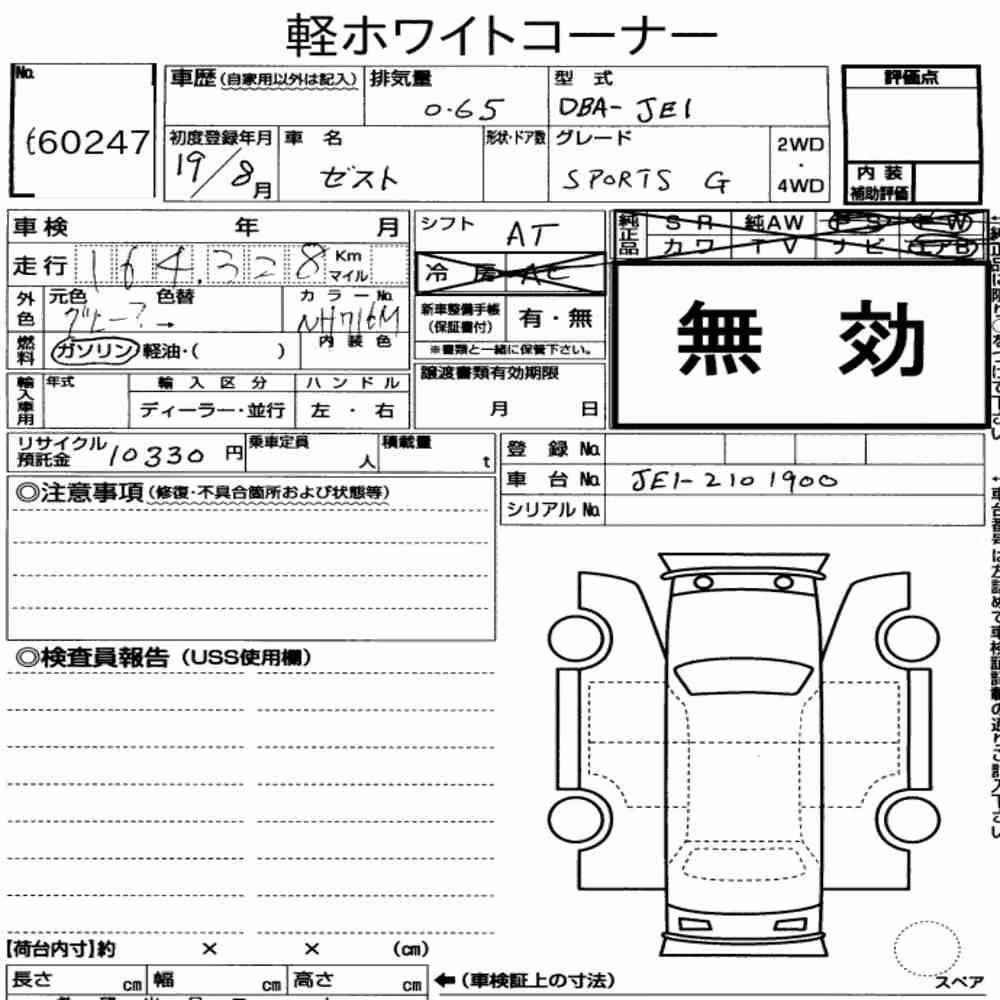 軽ホワイトコーナー
No.
t60247
車歴(自家用以外は記入)
排気量
0.65
型 式
DBA-JE1
評価点
内装
補助評価
初度登録年月
19/8月
車 名
ゼスト
形状・ドア数
グレード
SPORTS G
2WD
・
4WD
車検 年 月
走行 164,328 Km
マイル
外色
元色 色替
カラーNo.
内装色
燃料
ガソリン・軽油・( )
輸入車用
年式
輸入区分
ディーラー・並行
ハンドル
左・右
シフト
AT
冷房 AC
新車整備手帳
(保証書付)
有・無
※書類と一緒に保管下さい。
譲渡書類有効期限
月 日
純正品
SR 純AW PS PW
カワ TV ナビ エアB
無 効
リサイクル
預託金
10330円
乗車定員
人
積載量
t
登 録 No.
車 台 No. JE1-2101900
シリアルNo.
◎注意事項(修復・不具合箇所および状態等)
◎検査員報告(USS使用欄)
【荷台内寸】約 × × (cm)
長さ cm 幅 cm 高さ cm
←(車検証上の寸法)
スペア